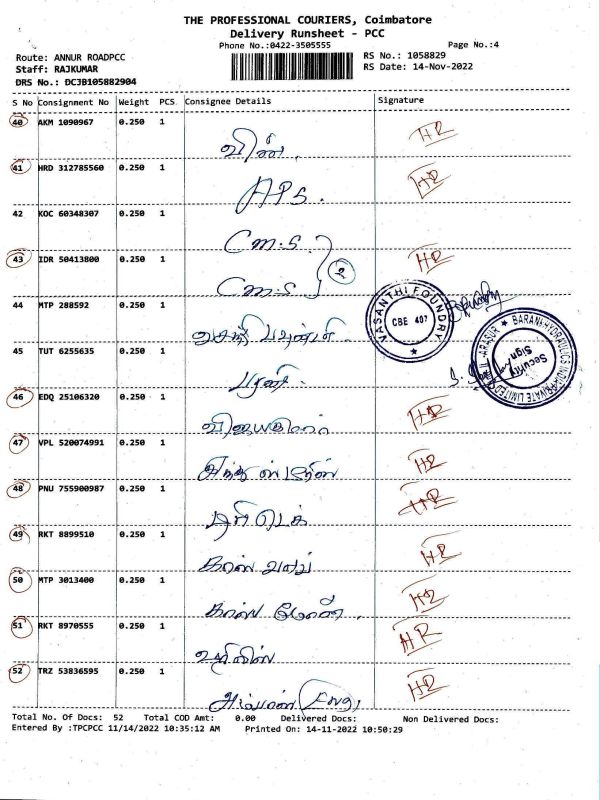 THE PROFESSIONAL COURIERS, Coimbatore
Delivery Runsheet - PCC
Phone No.:0422-3505555 Page No.:4
Route: ANNUR ROADPCC RS No.: 1058829
Staff: RAJKUMAR RS Date: 14-Nov-2022
DRS No.: DCJB105882904
S No Consignment No Weight PCS Consignee Details Signature
40 AKM 1090967 0.250 1 HR
41 HRD 312785560 0.250 1 HR
APS.
42 KOC 60348307 0.250 1
Cm.S
43 IDR 50413800 0.250 1 HR
2
Cm.S
44 MTP 288592 0.250 1
VASANTHI FOUNDRY
CBE 407
45 TUT 6255635 0.250 1
BARANI HYDRAULICS INDIA PRIVATE LIMITED
Security
Sign
பரணி.
46 EDQ 25106320 0.250 1 HR
47 VPL 520074991 0.250 1 HR
48 PNU 755900987 0.250 1 HR
49 RKT 8899510 0.250 1 HR
50 MTP 3013400 0.250 1 HR
51 RKT 8970555 0.250 1 HR
52 TRZ 53836595 0.250 1 HR
Total No. Of Docs: 52 Total COD Amt: 0.00 Delivered Docs: Non Delivered Docs:
Entered By :TPCPCC 11/14/2022 10:35:12 AM Printed On: 14-11-2022 10:50:29